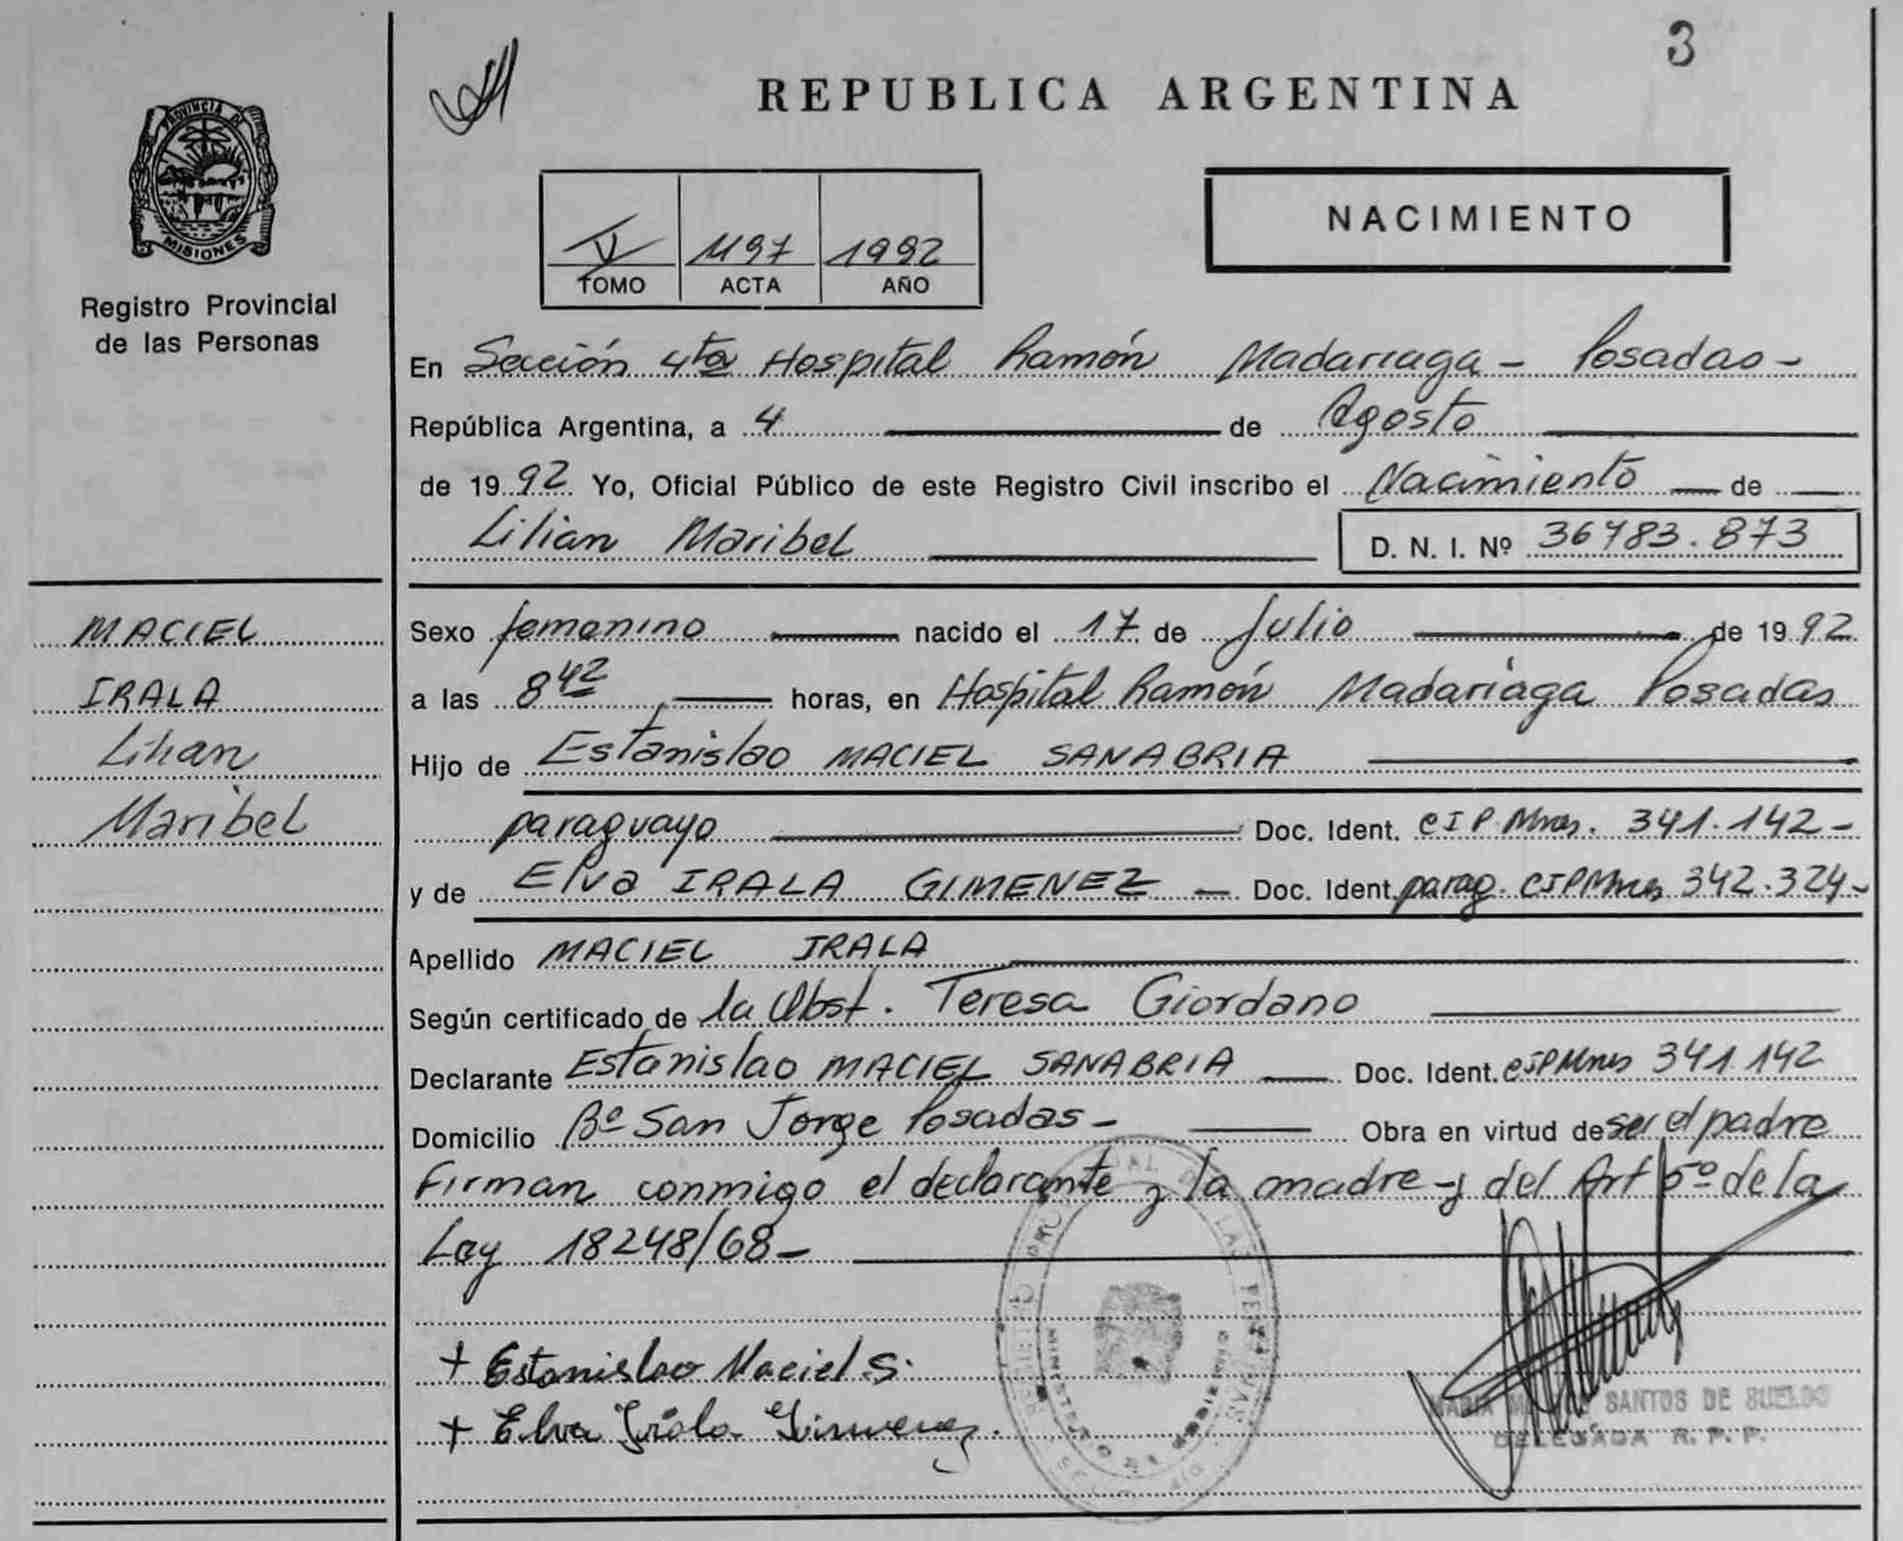 3
REPUBLICA ARGENTINA
PROVINCIA DE
MISIONES
Registro Provincial
de las Personas
NACIMIENTO
V 1197 1992
TOMO ACTA AÑO
En Sección 4ta Hospital Ramón Madariaga - Posadas -
República Argentina, a 4 de Agosto
de 1992 Yo, Oficial Público de este Registro Civil inscribo el Nacimiento de
Lilian Maribel D. N. I. Nº 36783.873
MACIEL
IRALA
Lilian
Maribel
Sexo femenino nacido el 17 de Julio de 1992
a las 8 42 horas, en Hospital Ramón Madariaga Posadas
Hijo de Estanislao MACIEL SANABRIA
paraguayo Doc. Ident. CIP Mnes. 341.142 -
y de Elva IRALA GIMENEZ - Doc. Ident. parag. CIPMnes 342.324 -
Apellido MACIEL IRALA
Según certificado de la Obst. Teresa Giordano
Declarante Estanislao MACIEL SANABRIA Doc. Ident. CIPMnes 341.142
Domicilio Bº San Jorge Posadas - Obra en virtud de ser el padre
Firman conmigo el declarante y la madre - y del Art 5º de la
Ley 18248/68 -
+ Estanislao Maciel S.
+ Elva Irala Gimenez.
MARIA SANTOS DE SUELDO
DELEGADA R. P. P.